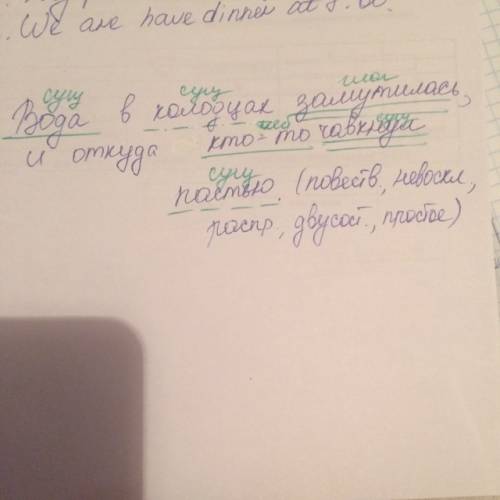 . We are have dinner at 8.00.
сущ сущ глаг
Вода в колодцах замутилась,
мест сущ
и откуда кто-то чавкнул
сущ
пастью. (повеств., невоскл,
распр., двусост., простое)